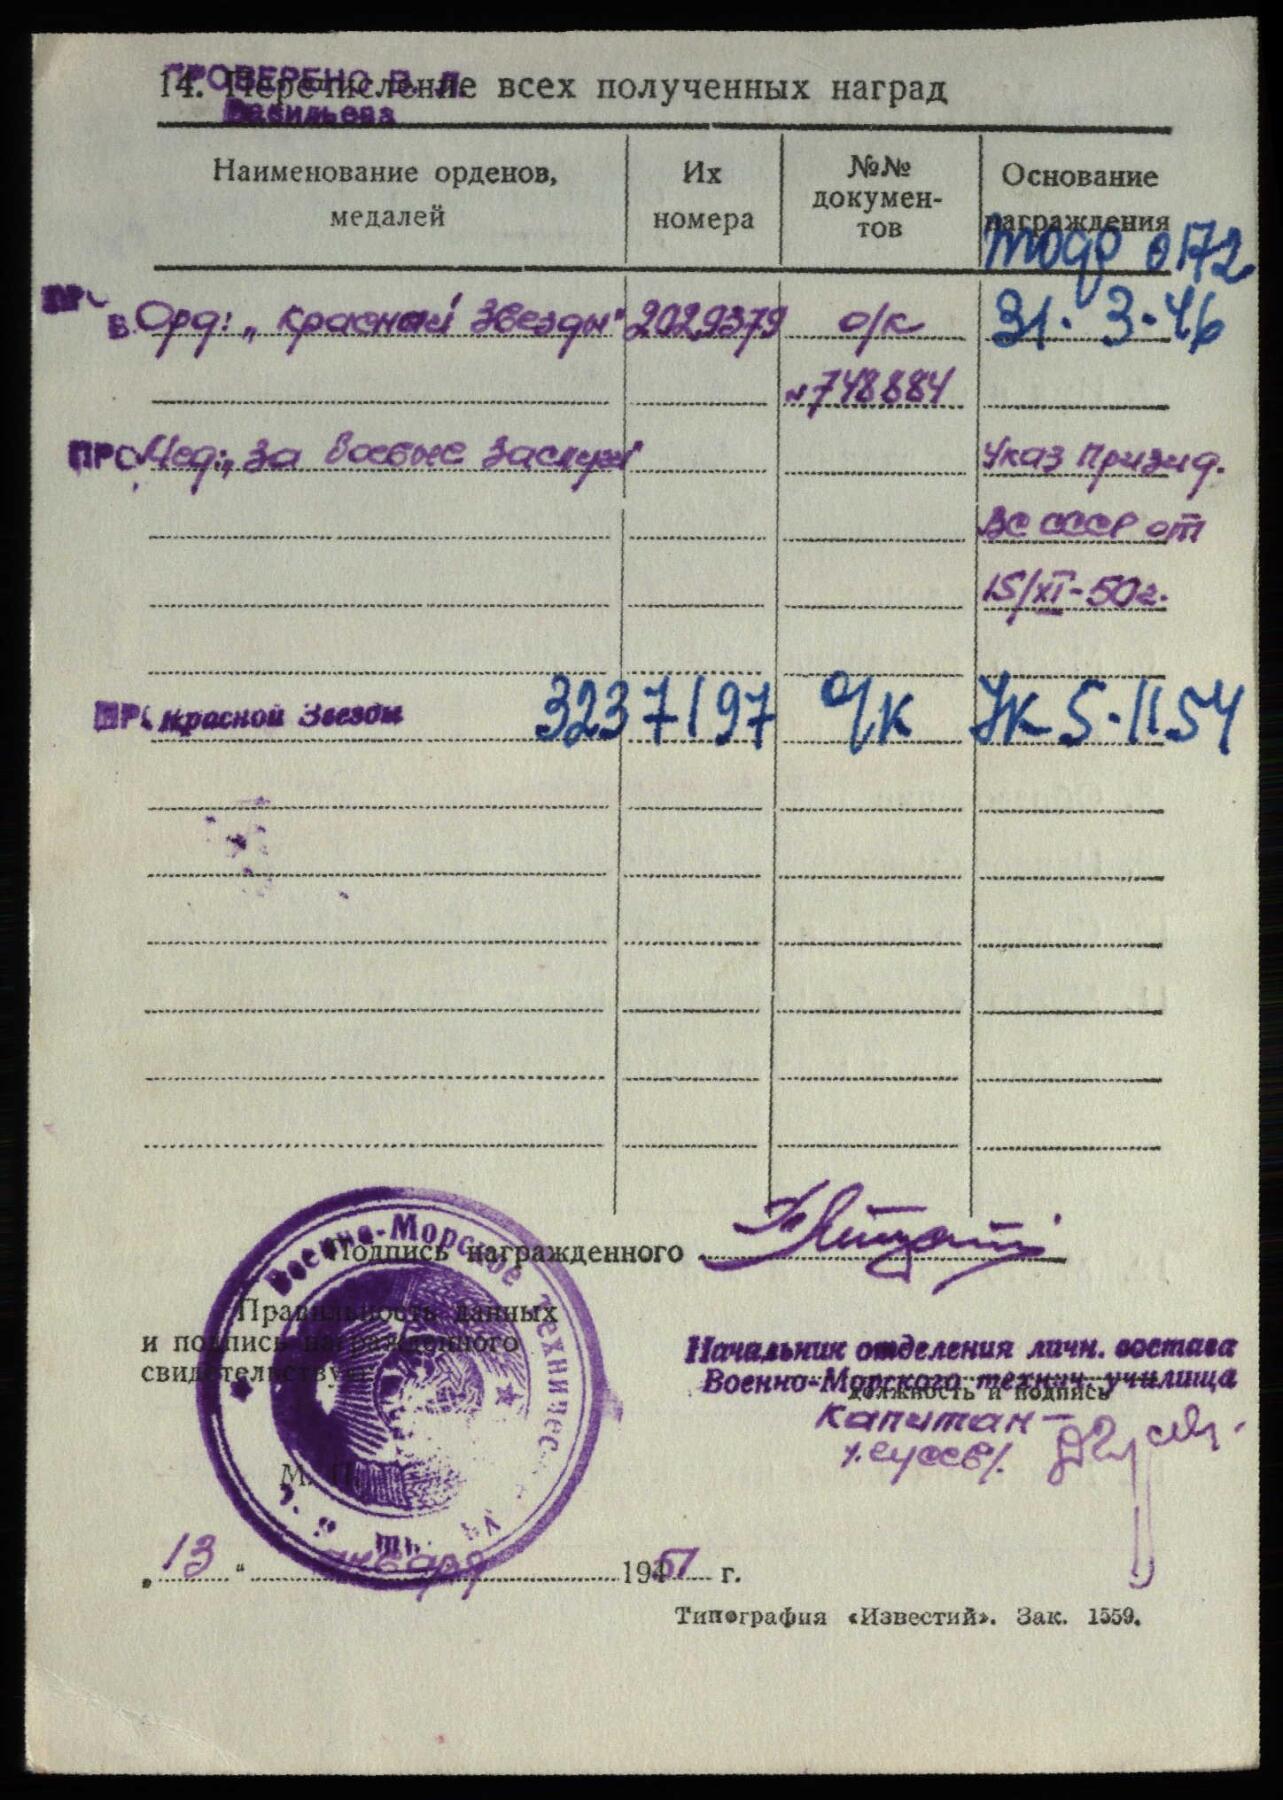 ПРОВЕРЕНО В. Л.
Васильева
14. Перечисление всех полученных наград
Наименование орденов, медалей
Их номера
№№ докумен-тов
Основание награждения
ТОФ 0172
ПРО
В. Орд: „Красной Звезды" 2029379 о/к 31-3-46
№748884
ПРО Мед: „За боевые заслуги" Указ Призид.
ВС СССР от
15/XI-50г.
ПРО Красной Звезды 3237197 о/к УК 5-11 54
Подпись награжденного
Правильность данных
и подпись награжденного
свидетельствую
М. П.
Военно-Морское Техническ
Начальник отделения личн. состава
Военно-Морского технич. училища
должность и подпись
капитан-
/.Гусев/.
„ 13 “ января 1951 г.
Типография «Известий». Зак. 1559.